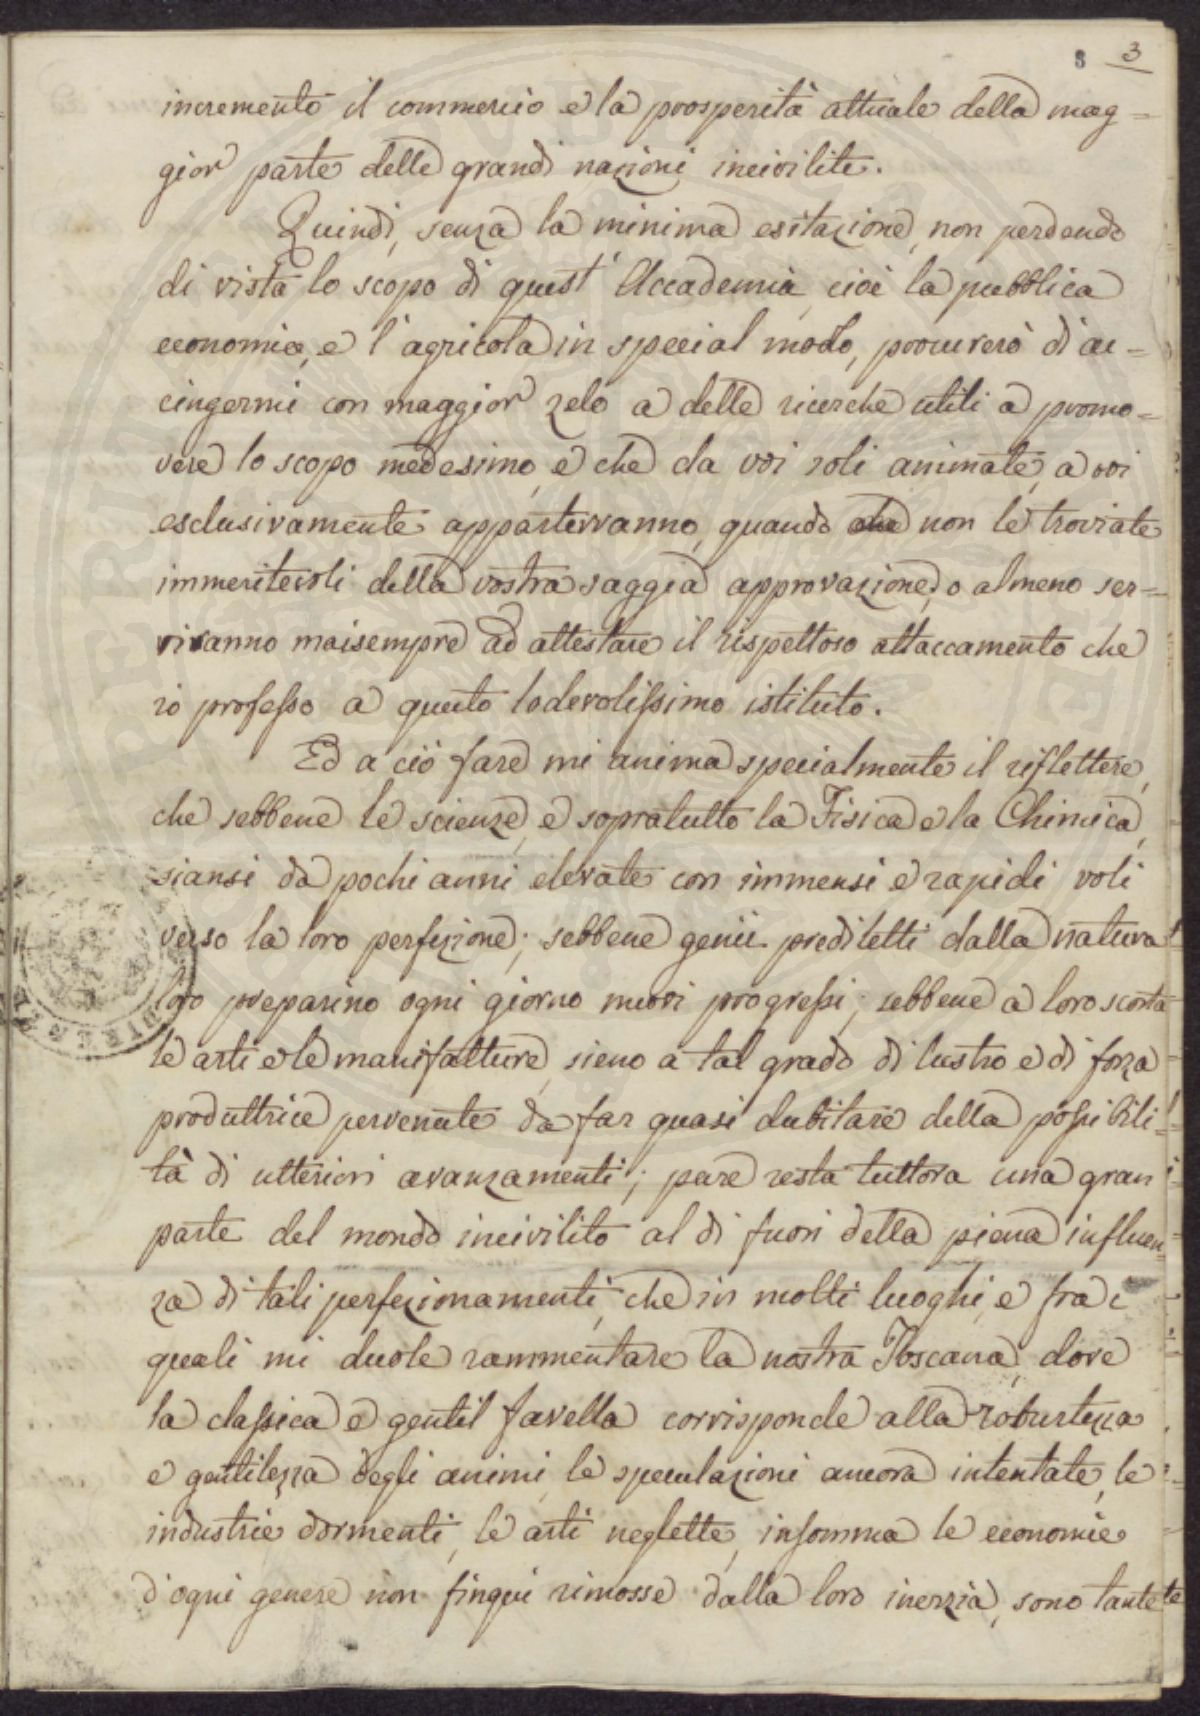 8 3
incremento il commercio e la prosperità attuale della mag=
gior parte delle grandi nazioni incivilite.
Quindi, senza la minima esitazione, non perdendo
di vista lo scopo di quest' Accademia, cioè la pubblica
economia, e l' agricola in special modo, procurerò di ac=
cingermi con maggior zelo a delle ricerche utili a promo=
vere lo scopo medesimo, e che da voi soli animate, a voi
esclusivamente apparterranno, quando che non le troviate
immeritevoli della vostra saggia approvazione, o almeno ser=
viranno maisempre ad attestare il rispettoso attaccamento che
io professo a questo lodevolissimo istituto.
Ed a ciò fare mi anima specialmente il riflettere,
che sebbene le scienze, e sopratutto la Fisica e la Chimica,
siansi da pochi anni elevate con immensi e rapidi voli
verso la loro perfezione; sebbene genii prediletti dalla natura
loro preparino ogni giorno nuovi progressi; sebbene a loro scorta
le arti e le manifatture, sieno a tal grado di lustro e di forza
produttrice pervenute da far quasi dubitare della possibili=
tà di ulteriori avanzamenti; pure resta tuttora una gran
parte del mondo incivilito al di fuori della piena influen=
za di tali perfezionamenti, che in molti luoghi, e fra i
quali mi duole rammentare la nostra Toscana, dove
la classica e gentil favella corrisponde alla robustezza
e gentilezza degli animi, le speculazioni ancora intentate, le
industrie dormenti, le arti neglette, insomma le economie
d'ogni genere non finqui rimosse dalla loro inerzia, sono tante